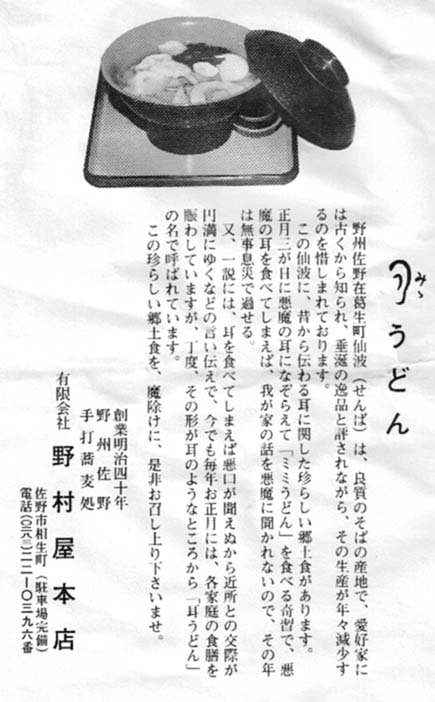 みゝ
うどん
野州佐野在葛生町仙波（せんば）は、良質のそばの産地で、愛好家に
は古くから知られ、垂涎の逸品と評されながら、その生産が年々減少す
るのを惜しまれております。
この仙波に、昔から伝わる耳に関した珍らしい郷土食があります。
正月三が日に悪魔の耳になぞらえて「ミミうどん」を食べる奇習で、悪
魔の耳を食べてしまえば、我が家の話を悪魔に聞かれないので、その年
は無事息災で過せる。
又、一説には、耳を食べてしまえば悪口が聞えぬから近所との交際が
円満にゆくなどの言い伝えで、今でも毎年お正月には、各家庭の食膳を
賑わしていますが、丁度、その形が耳のようなところから「耳うどん」
の名で呼ばれています。
この珍らしい郷土食を、魔除けに、是非お召し上り下さいませ。
創業明治四十年
野州佐野
手打蕎麦処
有限会社 野村屋本店
佐野市相生町（駐車場完備）
電話(〇二八三)二二―〇三九六番